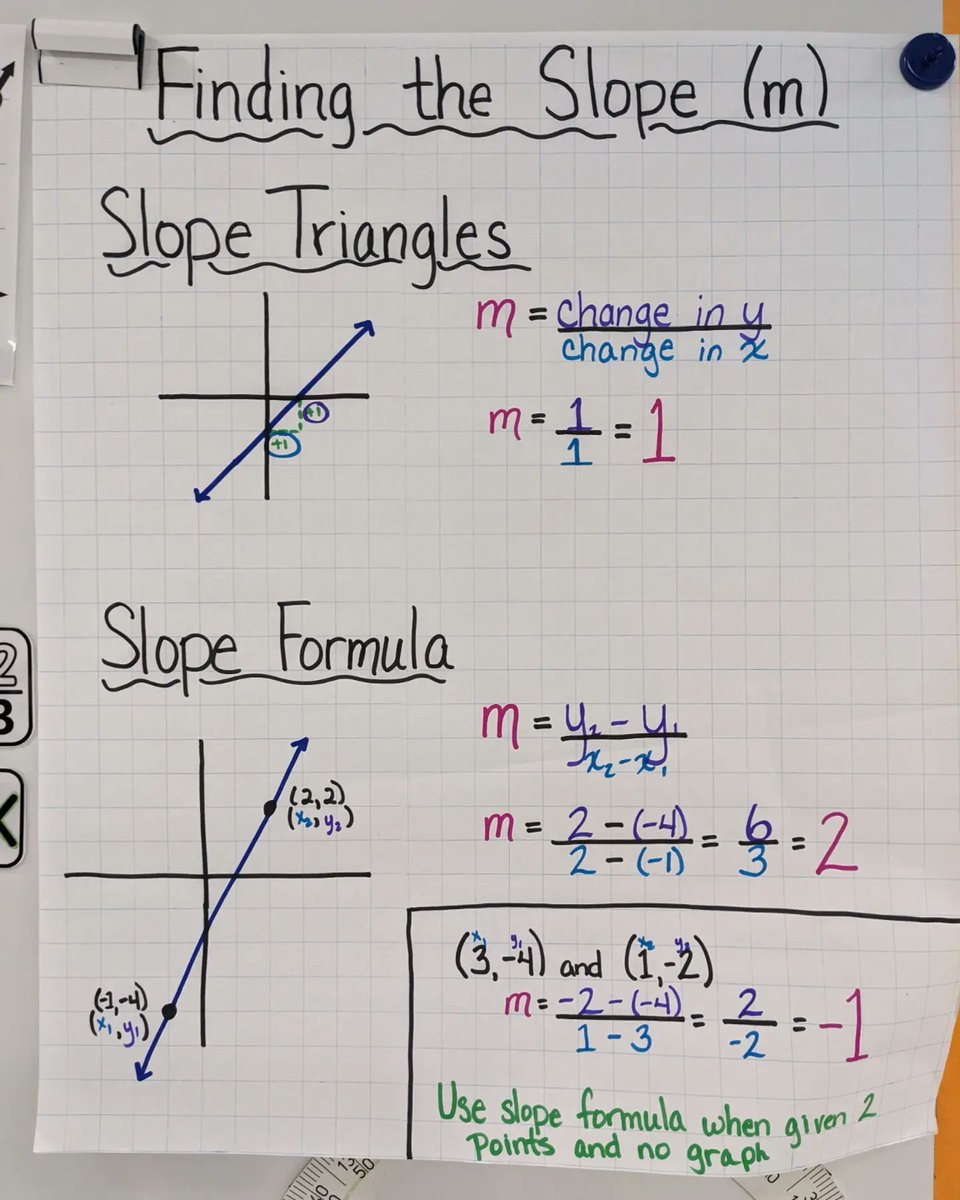 Finding the Slope (m)
Slope Triangles
m = change in y / change in x
+1
+1
m = 1/1 = 1
Slope Formula
m = y₂ - y₁ / x₂ - x₁
(2,2)
(x₂, y₂)
m = 2 - (-4) / 2 - (-1) = 6/3 = 2
(-1,-4)
(x₁, y₁)
x₁ y₁ x₂ y₂
(3,-4) and (1,-2)
m = -2 - (-4) / 1 - 3 = 2/-2 = -1
Use slope formula when given 2
points and no graph
2
3